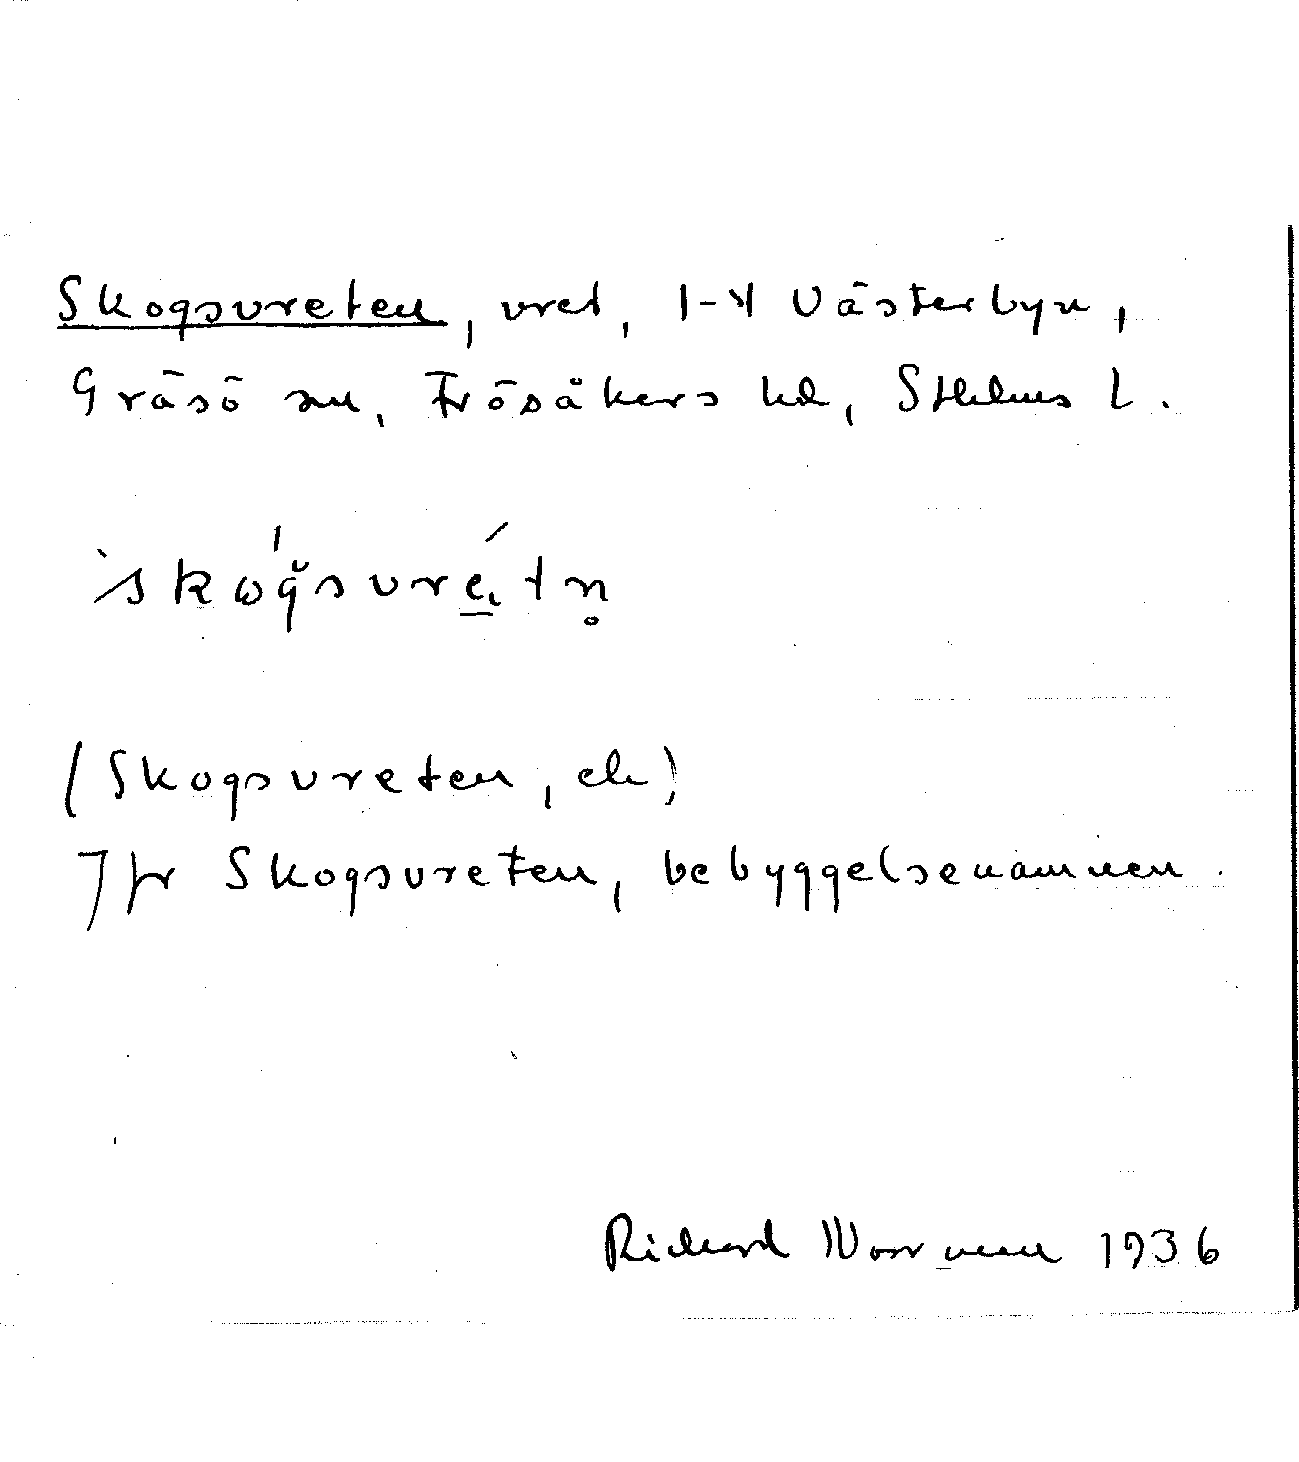 Skogsvreten, vret, 1-4 Västerbyn,
Gräsö sn, Frösåkers hd, Sthlms l.
skog̊svretn̥
(Skogsvreten, ek)
Jfr Skogsvreten, bebyggelsenamnen.
Richard 1936